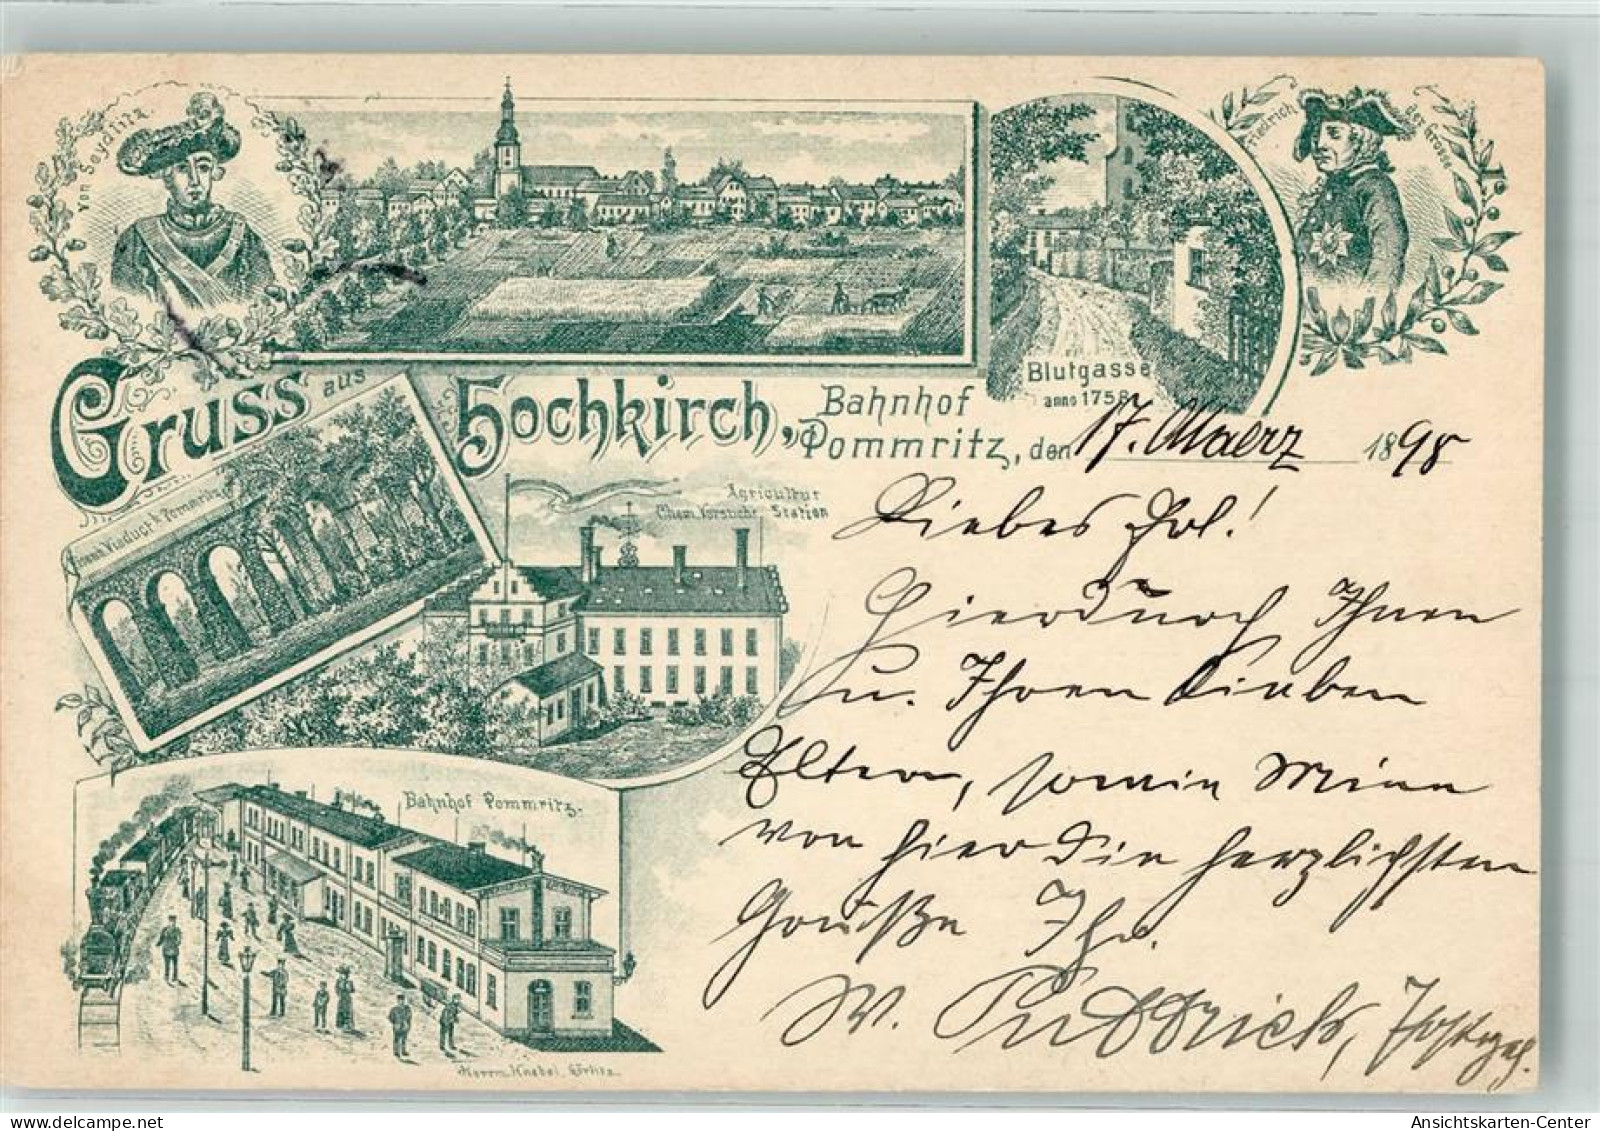 von Seydlitz
Friedrich der Grosse
Blutgasse
anno 1758
Gruss aus Hochkirch, Bahnhof
Pommritz, den 17. Maerz 1898
Viaduct b. Pommritz
Agricultur
Chem. Versuchs Station
Liebes Frl.!
Hierdurch Ihnen
u. Ihren lieben
Eltern, sowie Minna
von hier die herzlichsten
Grüße Ihr.
W.
Bahnhof Pommritz.
Herrm. Knebel, Görlitz
Ansichtskarten-Center